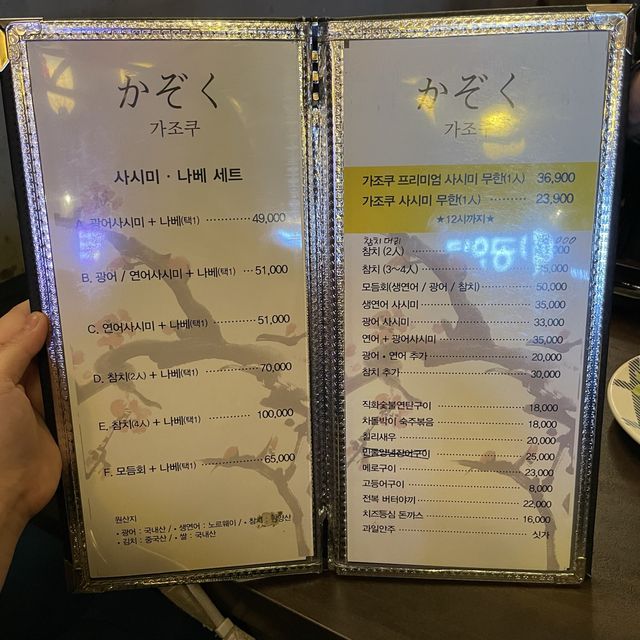 かぞく
가조쿠
사시미 · 나베 세트
A. 광어사시미 + 나베(택1) 49,000
B. 광어 / 연어사시미 + 나베(택1) 51,000
C. 연어사시미 + 나베(택1) 51,000
D. 참치(2人) + 나베(택1) 70,000
E. 참치(4人) + 나베(택1) 100,000
F. 모듬회 + 나베(택1) 65,000
원산지
• 광어 : 국내산 / • 생연어 : 노르웨이 / • 참치 :
• 김치 : 중국산 / • 쌀 : 국내산
かぞく
가조쿠
가조쿠 프리미엄 사시미 무한(1人) 36,900
가조쿠 사시미 무한(1人) 23,900
★12시까지★
참치 머리
참치 (2人)
참치 (3~4人)
모듬회(생연어 / 광어 / 참치) 50,000
생연어 사시미 35,000
광어 사시미 33,000
연어 + 광어사시미 35,000
광어 • 연어 추가 20,000
참치 추가 30,000
직화숯불연탄구이 18,000
차돌박이 숙주볶음 18,000
칠리새우 20,000
25,000
메로구이 23,000
고등어구이 8,000
전복 버터야끼 22,000
치즈등심 돈까스 16,000
과일안주 싯가